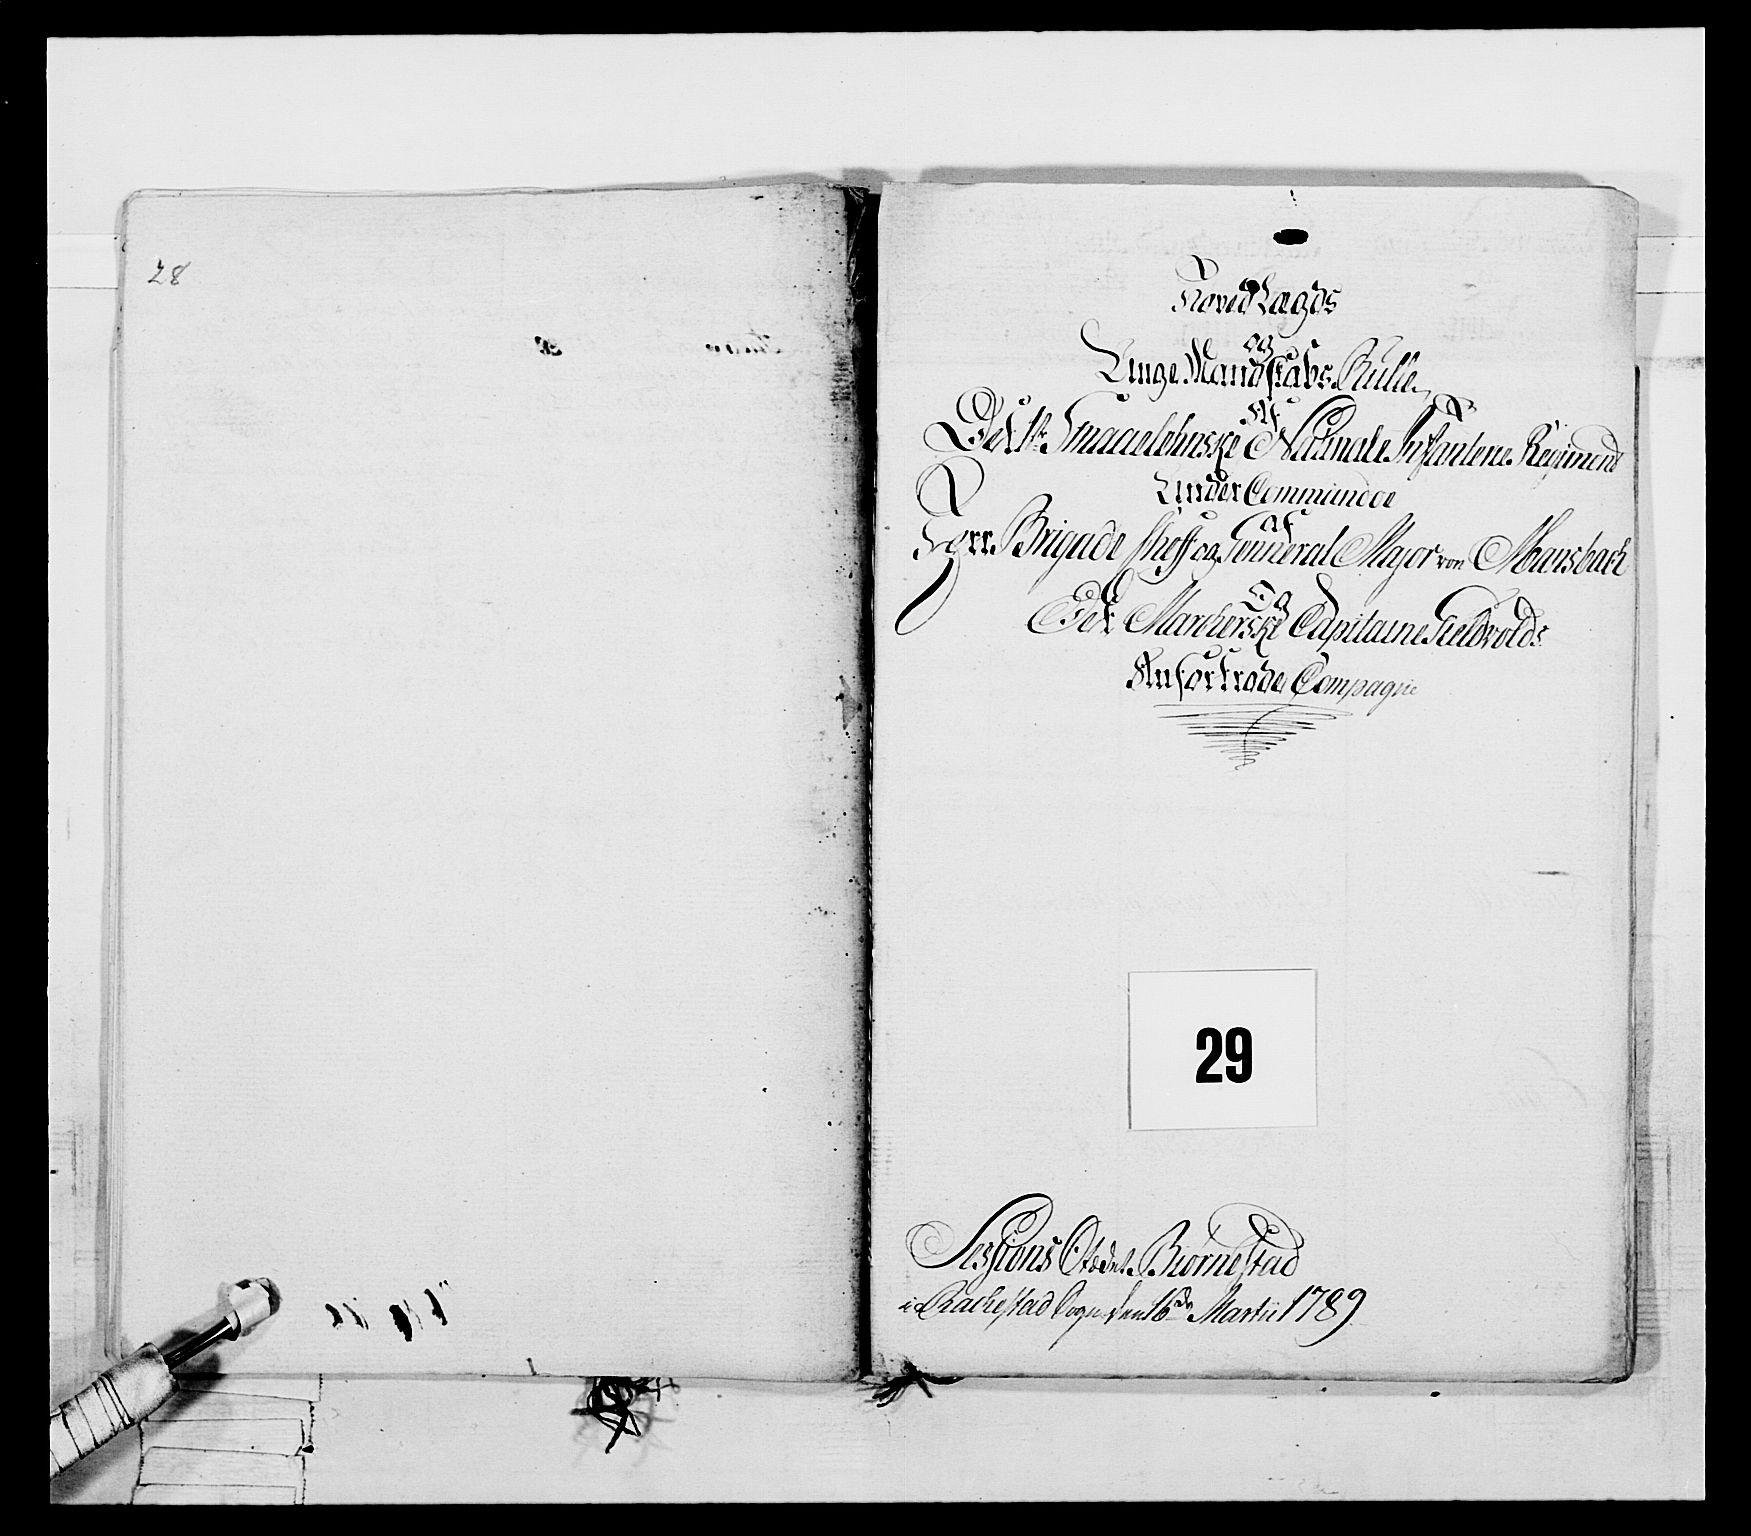 28
Hoved Lægds
og
Unge Mandskabs Rulle
Af
Det 1te Smaaelehnske National Infanterie Regiment
Under Commandoe
af
Herr Brigade Cheff og General Major von Mansbach
Og
Det Markerske Capitaine Heldvolds
Anfortrode Compagnie
29
Sessions Stædet Biørnestad
i Rachestad Sogn den 16de Martii 1789